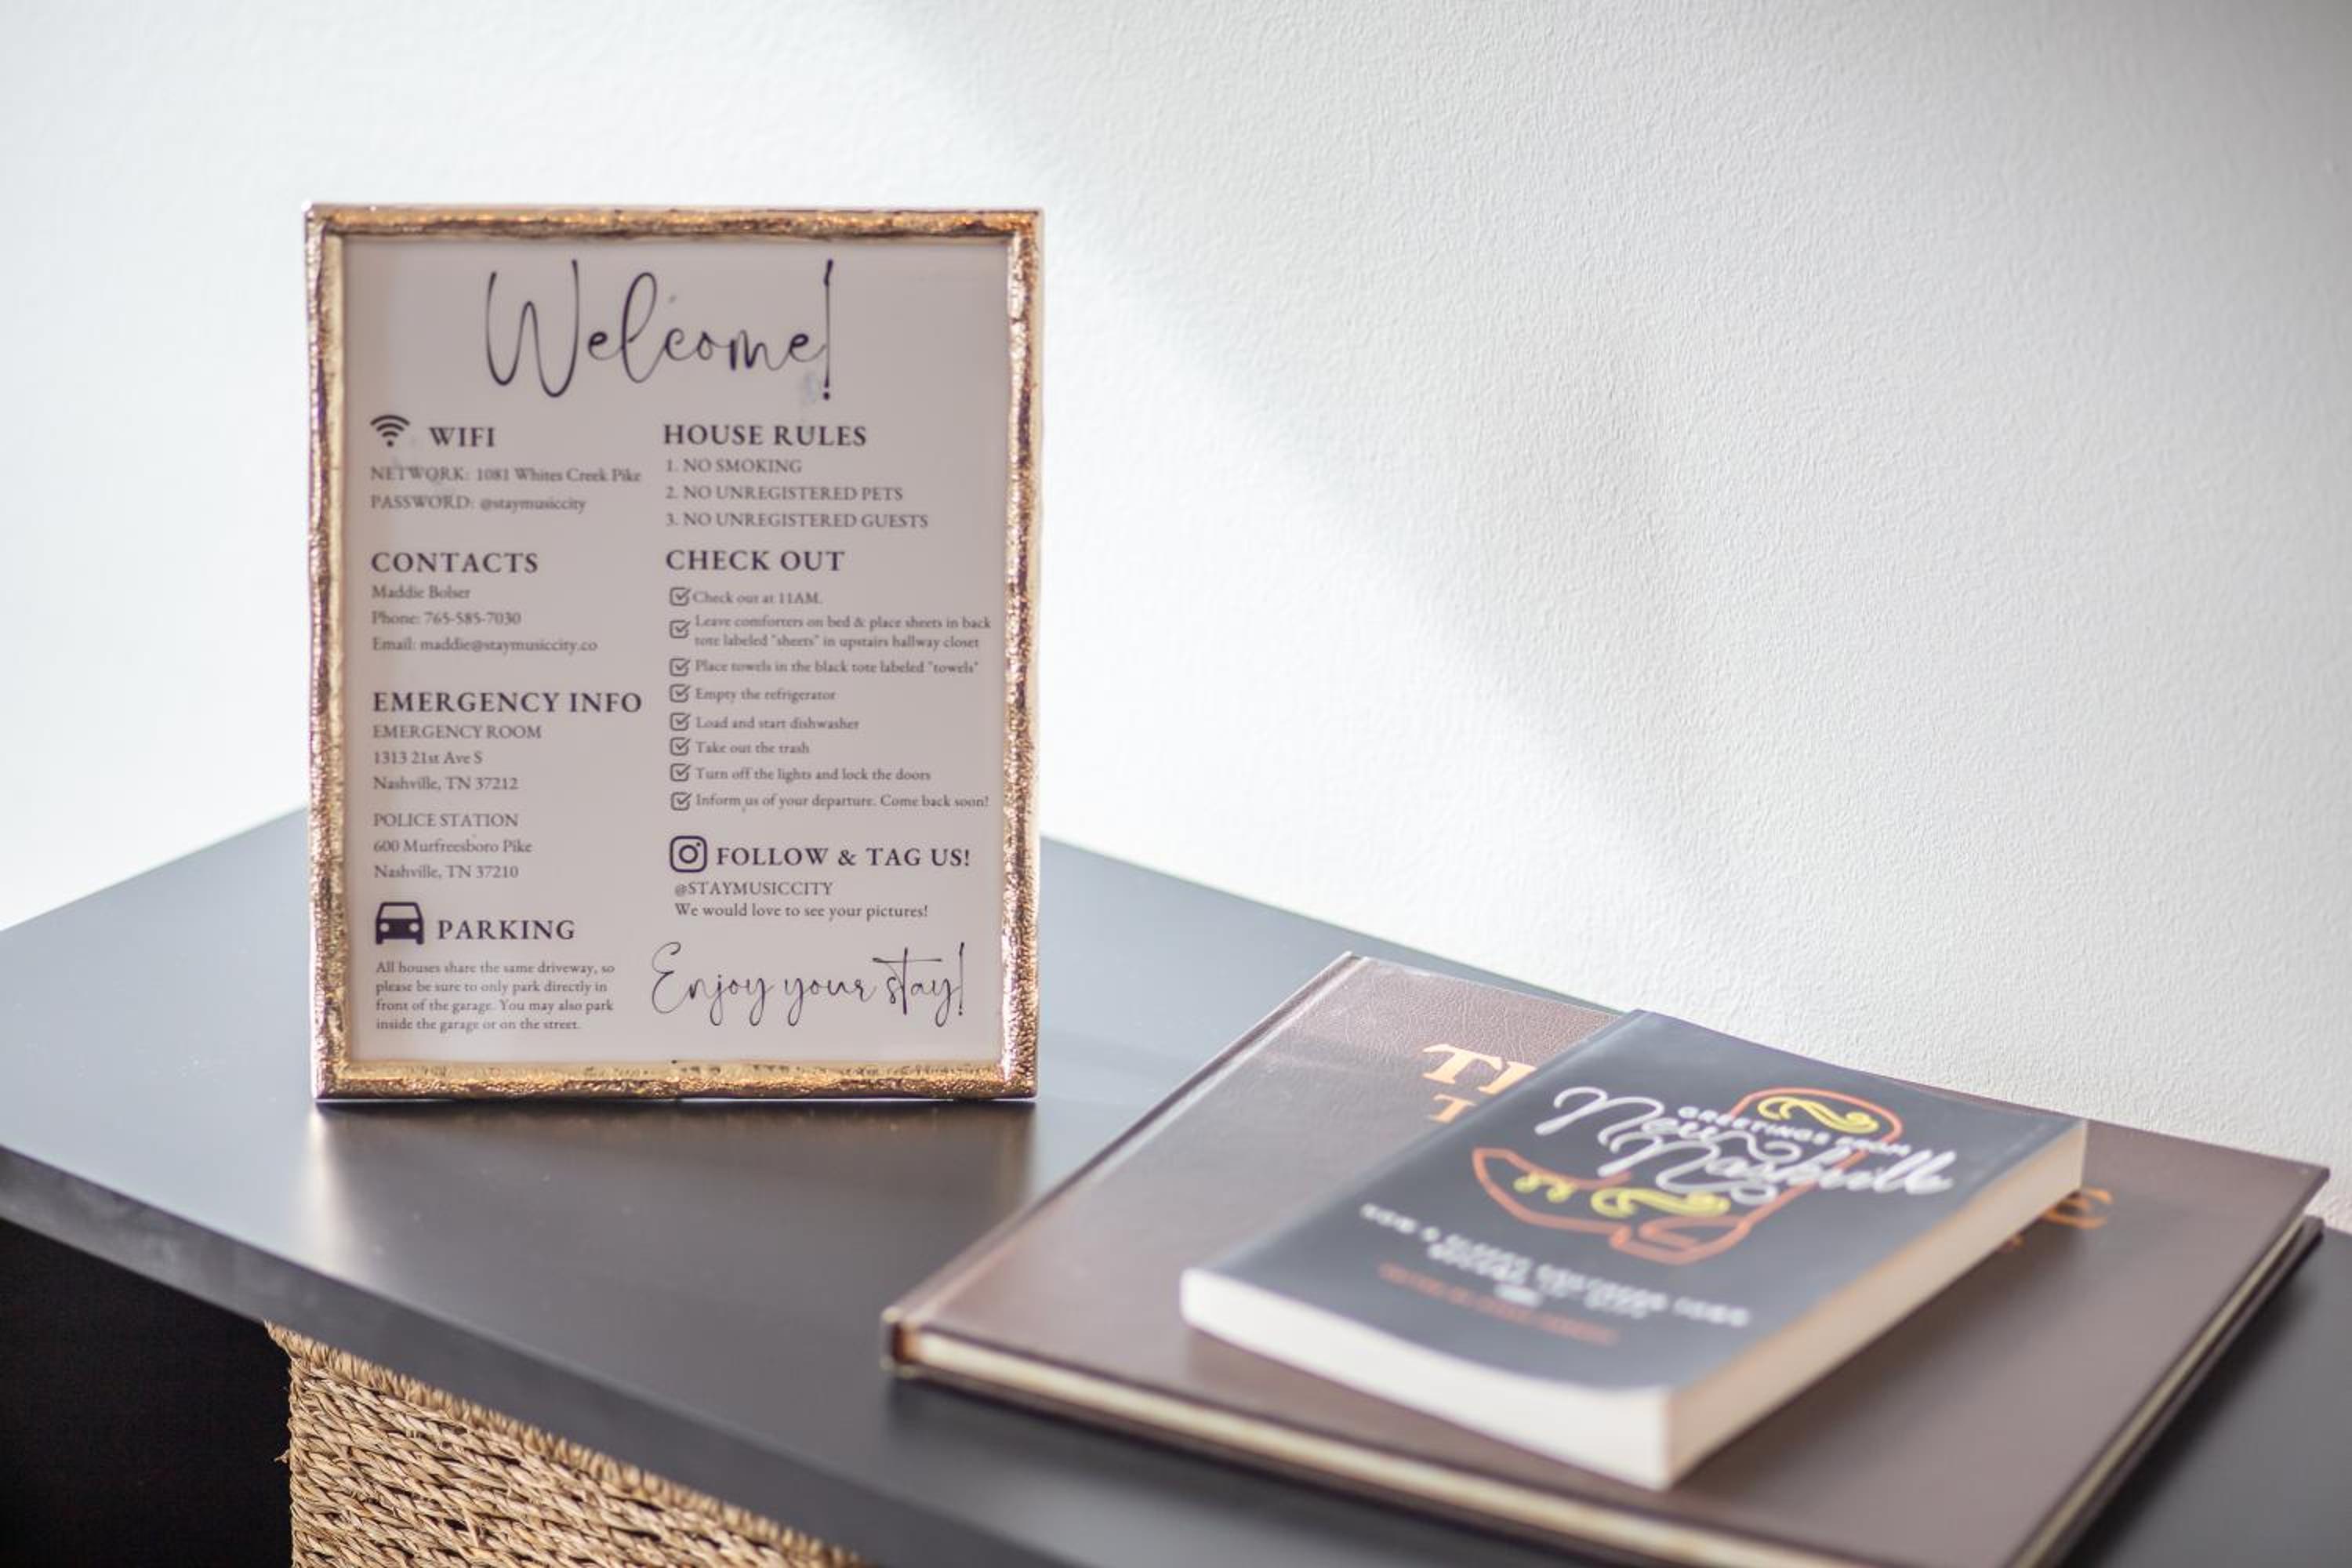 Welcome!
WIFI
NETWORK: 1081 Whites Creek Pike
PASSWORD: @staymusiccity
CONTACTS
Maddie Bolser
Phone: 765-585-7030
Email: maddie@staymusiccity.co
EMERGENCY INFO
EMERGENCY ROOM
1313 21st Ave S
Nashville, TN 37212
POLICE STATION
600 Murfreesboro Pike
Nashville, TN 37210
PARKING
All houses share the same driveway, so
please be sure to only park directly in
front of the garage. You may also park
inside the garage or on the street.
HOUSE RULES
1. NO SMOKING
2. NO UNREGISTERED PETS
3. NO UNREGISTERED GUESTS
CHECK OUT
Check out at 11AM.
Leave comforters on bed & place sheets in back
tote labeled "sheets" in upstairs hallway closet
Place towels in the black tote labeled "towels"
Empty the refrigerator
Load and start dishwasher
Take out the trash
Turn off the lights and lock the doors
Inform us of your departure. Come back soon!
FOLLOW & TAG US!
@STAYMUSICCITY
We would love to see your pictures!
Enjoy your stay!
GREETINGS FROM
New Nashville